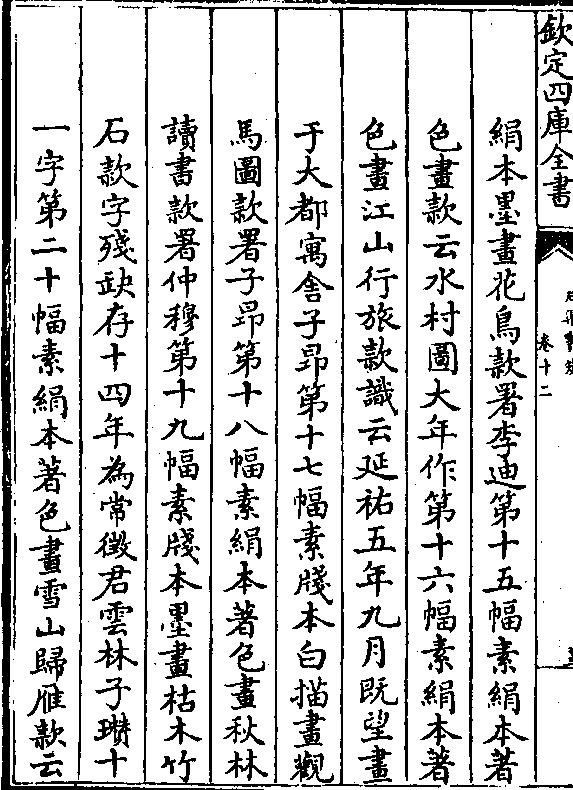 欽定四庫全書
卷十二
絹本墨畫花鳥款署李迪第十五幅素絹本著
色畫款云水村圖大年作第十六幅素絹本著
色畫江山行旅款識云延祐五年九月既望畫
于大都寓舍子昻第十七幅素牋本白描畫觀
馬圖款署子昻第十八幅素絹本著色畫秋林
讀書款署仲穆第十九幅素牋本墨畫枯木竹
石款字殘缺存十四年為常徵君雲林子瓚十
一字第二十幅素絹本著色畫雪山歸雁款云